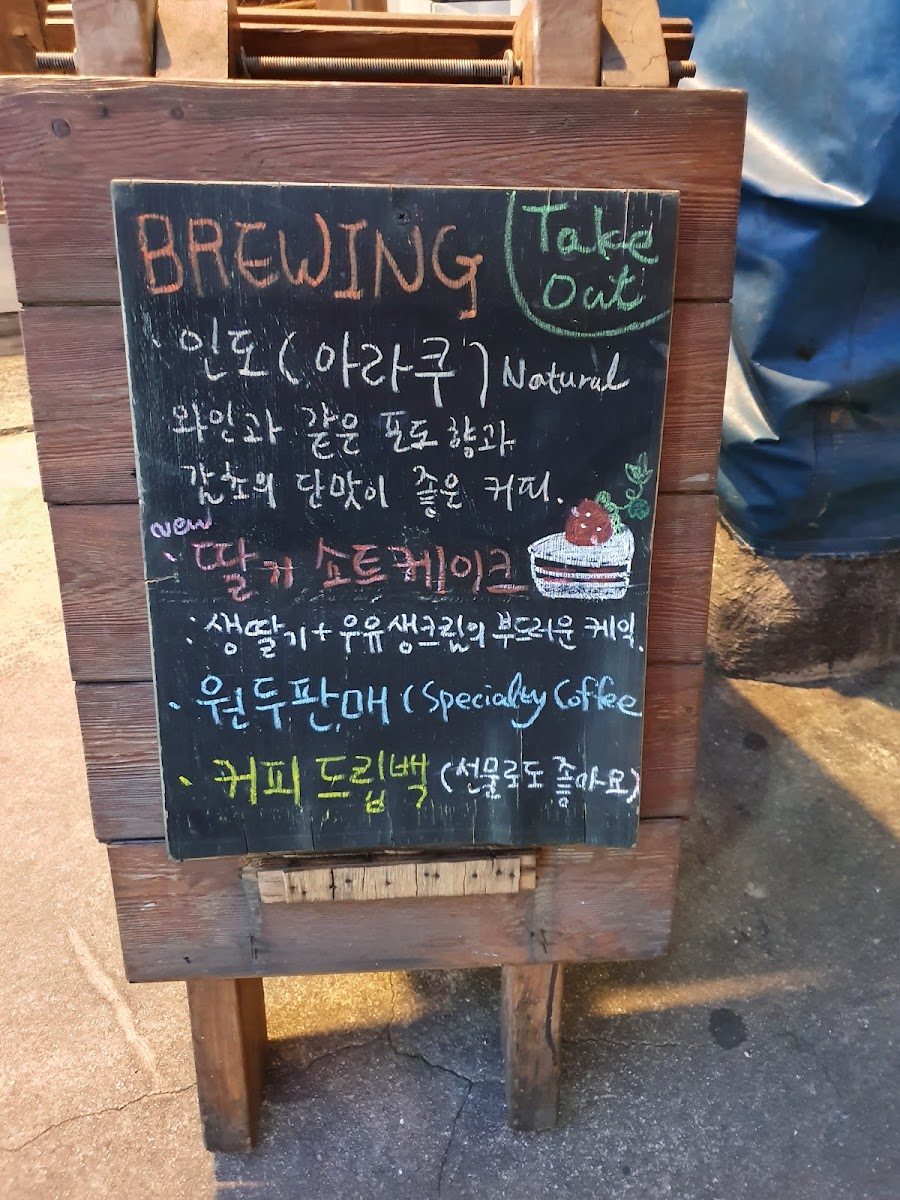 BREWING
Take
Out
· 인도(아라쿠) Natural
와인과 같은 포도향과
감초의 단맛이 좋은 커피.
new
· 딸기 쇼트케이크
: 생딸기+우유생크림의 부드러운 케익.
· 원두판매 (Specialty Coffee
· 커피 드립백 (선물로도 좋아요)